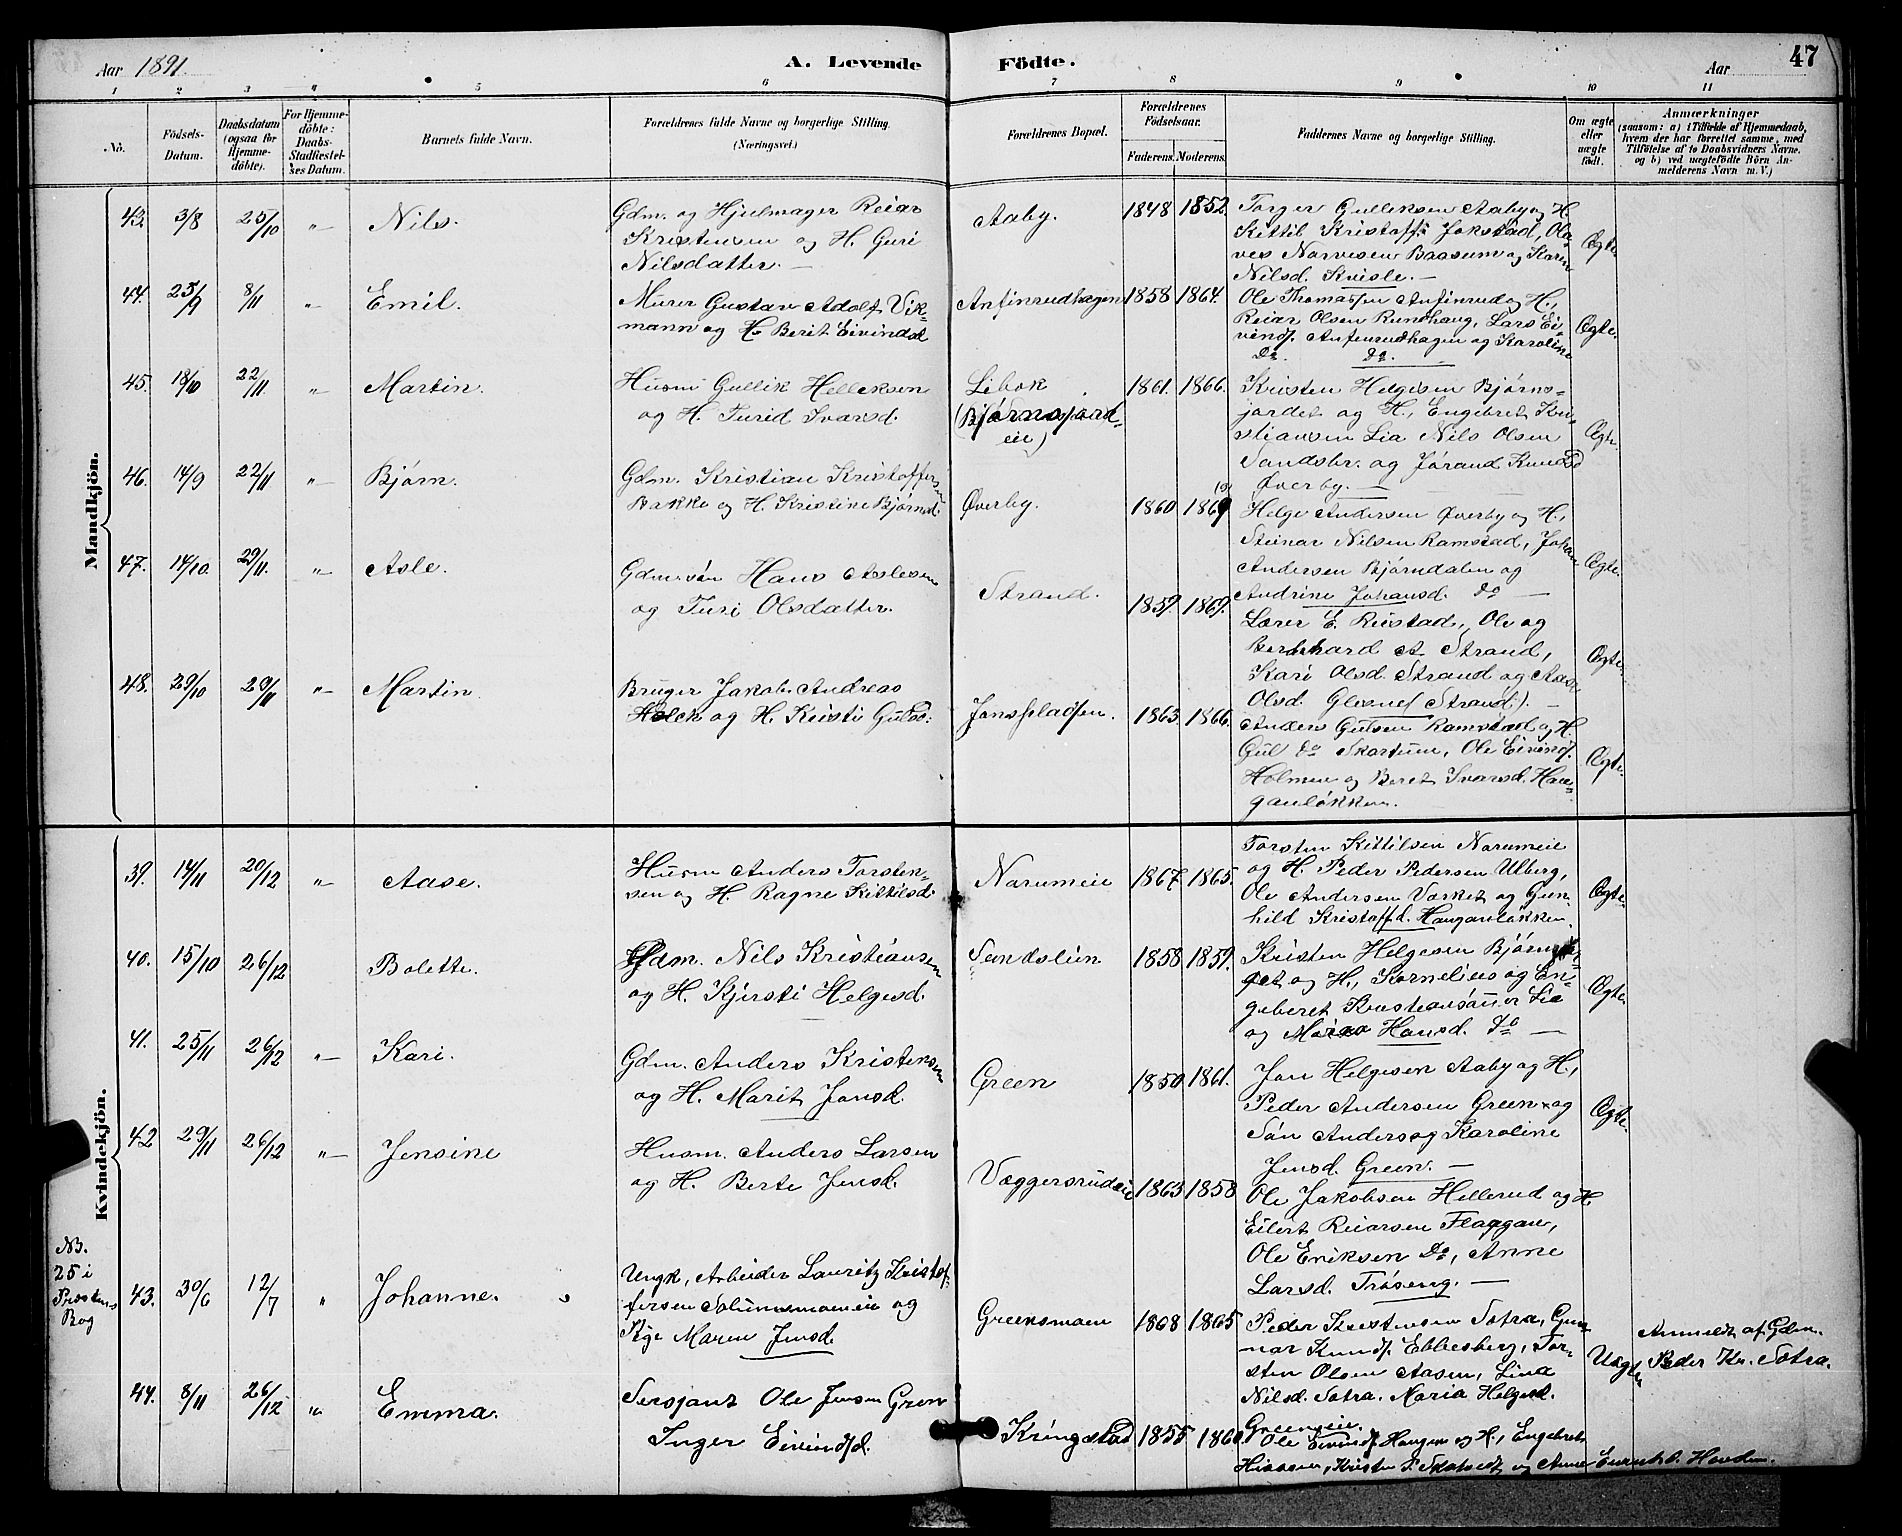 Aar 1891.
A. Levende Födte.
Aar
47
1 2 3 4 5 6 7 8 9 10 11
No.
Födsels-Datum.
Daabsdatum (ogsaa for Hjemme-döbte).
For Hjemme-döbte: Daabs-Stadfæstel-ses Datum.
Barnets fulde Navn.
Forældrenes fulde Navne og borgerlige Stilling. (Næringsvei.)
Forældrenes Bopæl.
Forældrenes Födselsaar.
Faderens. Moderens.
Faddernes Navne og borgerlige Stilling.
Om ægte eller uægte födt.
Anmærkninger
(saasom: a) i Tilfælde af Hjemmedaab, hvem der har forrettet samme, med Tilföielse af to Daabsvidners Navne. og b) ved uægtefödte Börn An-melderens Navn m. V.)
Mandkjön.
43. 3/8 25/10 " Nils.
Gdm. og Hjulmager Reiar
Kristensen og H. Guri
Nilsdatter. —
Aaby. 1848 1852.
Torger Gulliksen Aaby og H.
Kittil Kristoffs Jokstad, Ola-
ves Narvesen Baasum og Karen
Nilsd. Kvisle. —
Ægte
44. 25/9 8/11 " Emil.
Murer Gustav Adolf Vik-
mann og H. Berit Eivindsd
Anfinrudhagen 1858 1864.
Ole Thomassen Anfinrud og H.,
Reiar Olsen Rundhaug, Lars Ei-
vinds. Anfinrudhagen og Karoline
Do. Do.
Ægte.
45. 18/10 22/11 " Martin.
Husm Gullik Helleksen
og H. Turid Ivarsd.
Libak
(Bjørnsjord-
eie)
1861. 1866.
Kristen Helgesen Bjørns-
jordet og H., Engebret Kri-
stiansen Lia Nils Olsen
Sandsbr. og Jørand Knudsd
Øverby. —
Ægte.
46. 14/9 22/11 " Bjørn.
Gdm. Kristian Kristoffersen
Bakke og H. Kristine Bjørnsd.
Øverby. 1860 1869
Helge Andersen Øverby og H.,
Steinar Nilsen Ramstad, Johan
Andersen Bjørndalen og
Andrine Johansd. Do —
Ægte.
47. 14/10. 29/11. " Asle.
Gdmssøn Hans Aslesen
og Turi Olsdatter.
Strand. 1859. 1869.
Lærer E. Rustad, Ole og
Bernhard A. Strand,
Kari Olsd. Strand og Aase
Olsd. Glesne (Strand). —
Ægte
48. 29/10 29/11 " Martin.
Bruger Jakob Andreas
Holck og H. Kristi Gulsd.
Jonspladsen. 1863 1866.
Anders Gulsen Ramstad og H.
Gul Do Skartum, Ole Eivinds.
Holmen og Beret Ivarsd. Hau-
ganløkken.
Ægte.
Kvindekjön.
39. 14/11 20/12 " Aase.
Husm Anders Torsten-
sen og H. Ragne Kittilsd.
Narumeie 1867. 1865.
Torsten Kittilsen Narumeie
og H. Peder Pedersen Ulberg,
Ole Andersen Vasket og Gun-
hild Kristoffd. Hauganløkken
Ægte.
40. 15/10 26/12 Bolette.
Gdm. Nils Kristiansen
og H. Kjersti Helgesd.
Sandslien 1858 1859.
Kristen Helgesen Bjørnsjor-
det og H., Kornelius og En-
gebret Kristiansønner Lia
og Maren Hansd. Do —
Ægte.
41. 25/11 26/12 " Kari.
Gdm. Anders Kristensen
og H. Marit Jonsd.
Green 1850 1861.
Jon Helgesen Aaby og H.,
Peder Andersen Green og
Søn Anders og Karoline
Jensd. Green. —
Ægte.
42 29/11 26/12 " Jensine
Husm. Anders Larsen
og H. Berte Jensd.
Væggersrudeie 1863 1858
Ole Jakobsen Hellerud og H
Eilert Reiarsen Flaggan,
Ole Eriksen Do, Anne
Larsd. Trøseng. —
NB.
25 i
Præstens
Bog
43. 30/6 12/7 " Johanne.
Ungk, Arbeider Lauritz Kristof-
fersen Solumsmoeneie og
Pige Maren Jensd.
Greensmoen 1868 1865
Peder Kristensen Sotra, Gun-
nar Knuds. Ebbesberg, Tor-
sten Olsen Aasen, Lina
Nilsd. Sotra. Maria Helgesd.
Greeneie.
Uægte
Anmeldt af Gdm.
Peder Kr. Sotra.
44. 8/11 26/12 " Emma.
Sersjant Ole Jensen Green
Inger Eivindsd.
Kringstad 1855 1860
Ole Eivinds Haugen og H., Engebret
og Anne